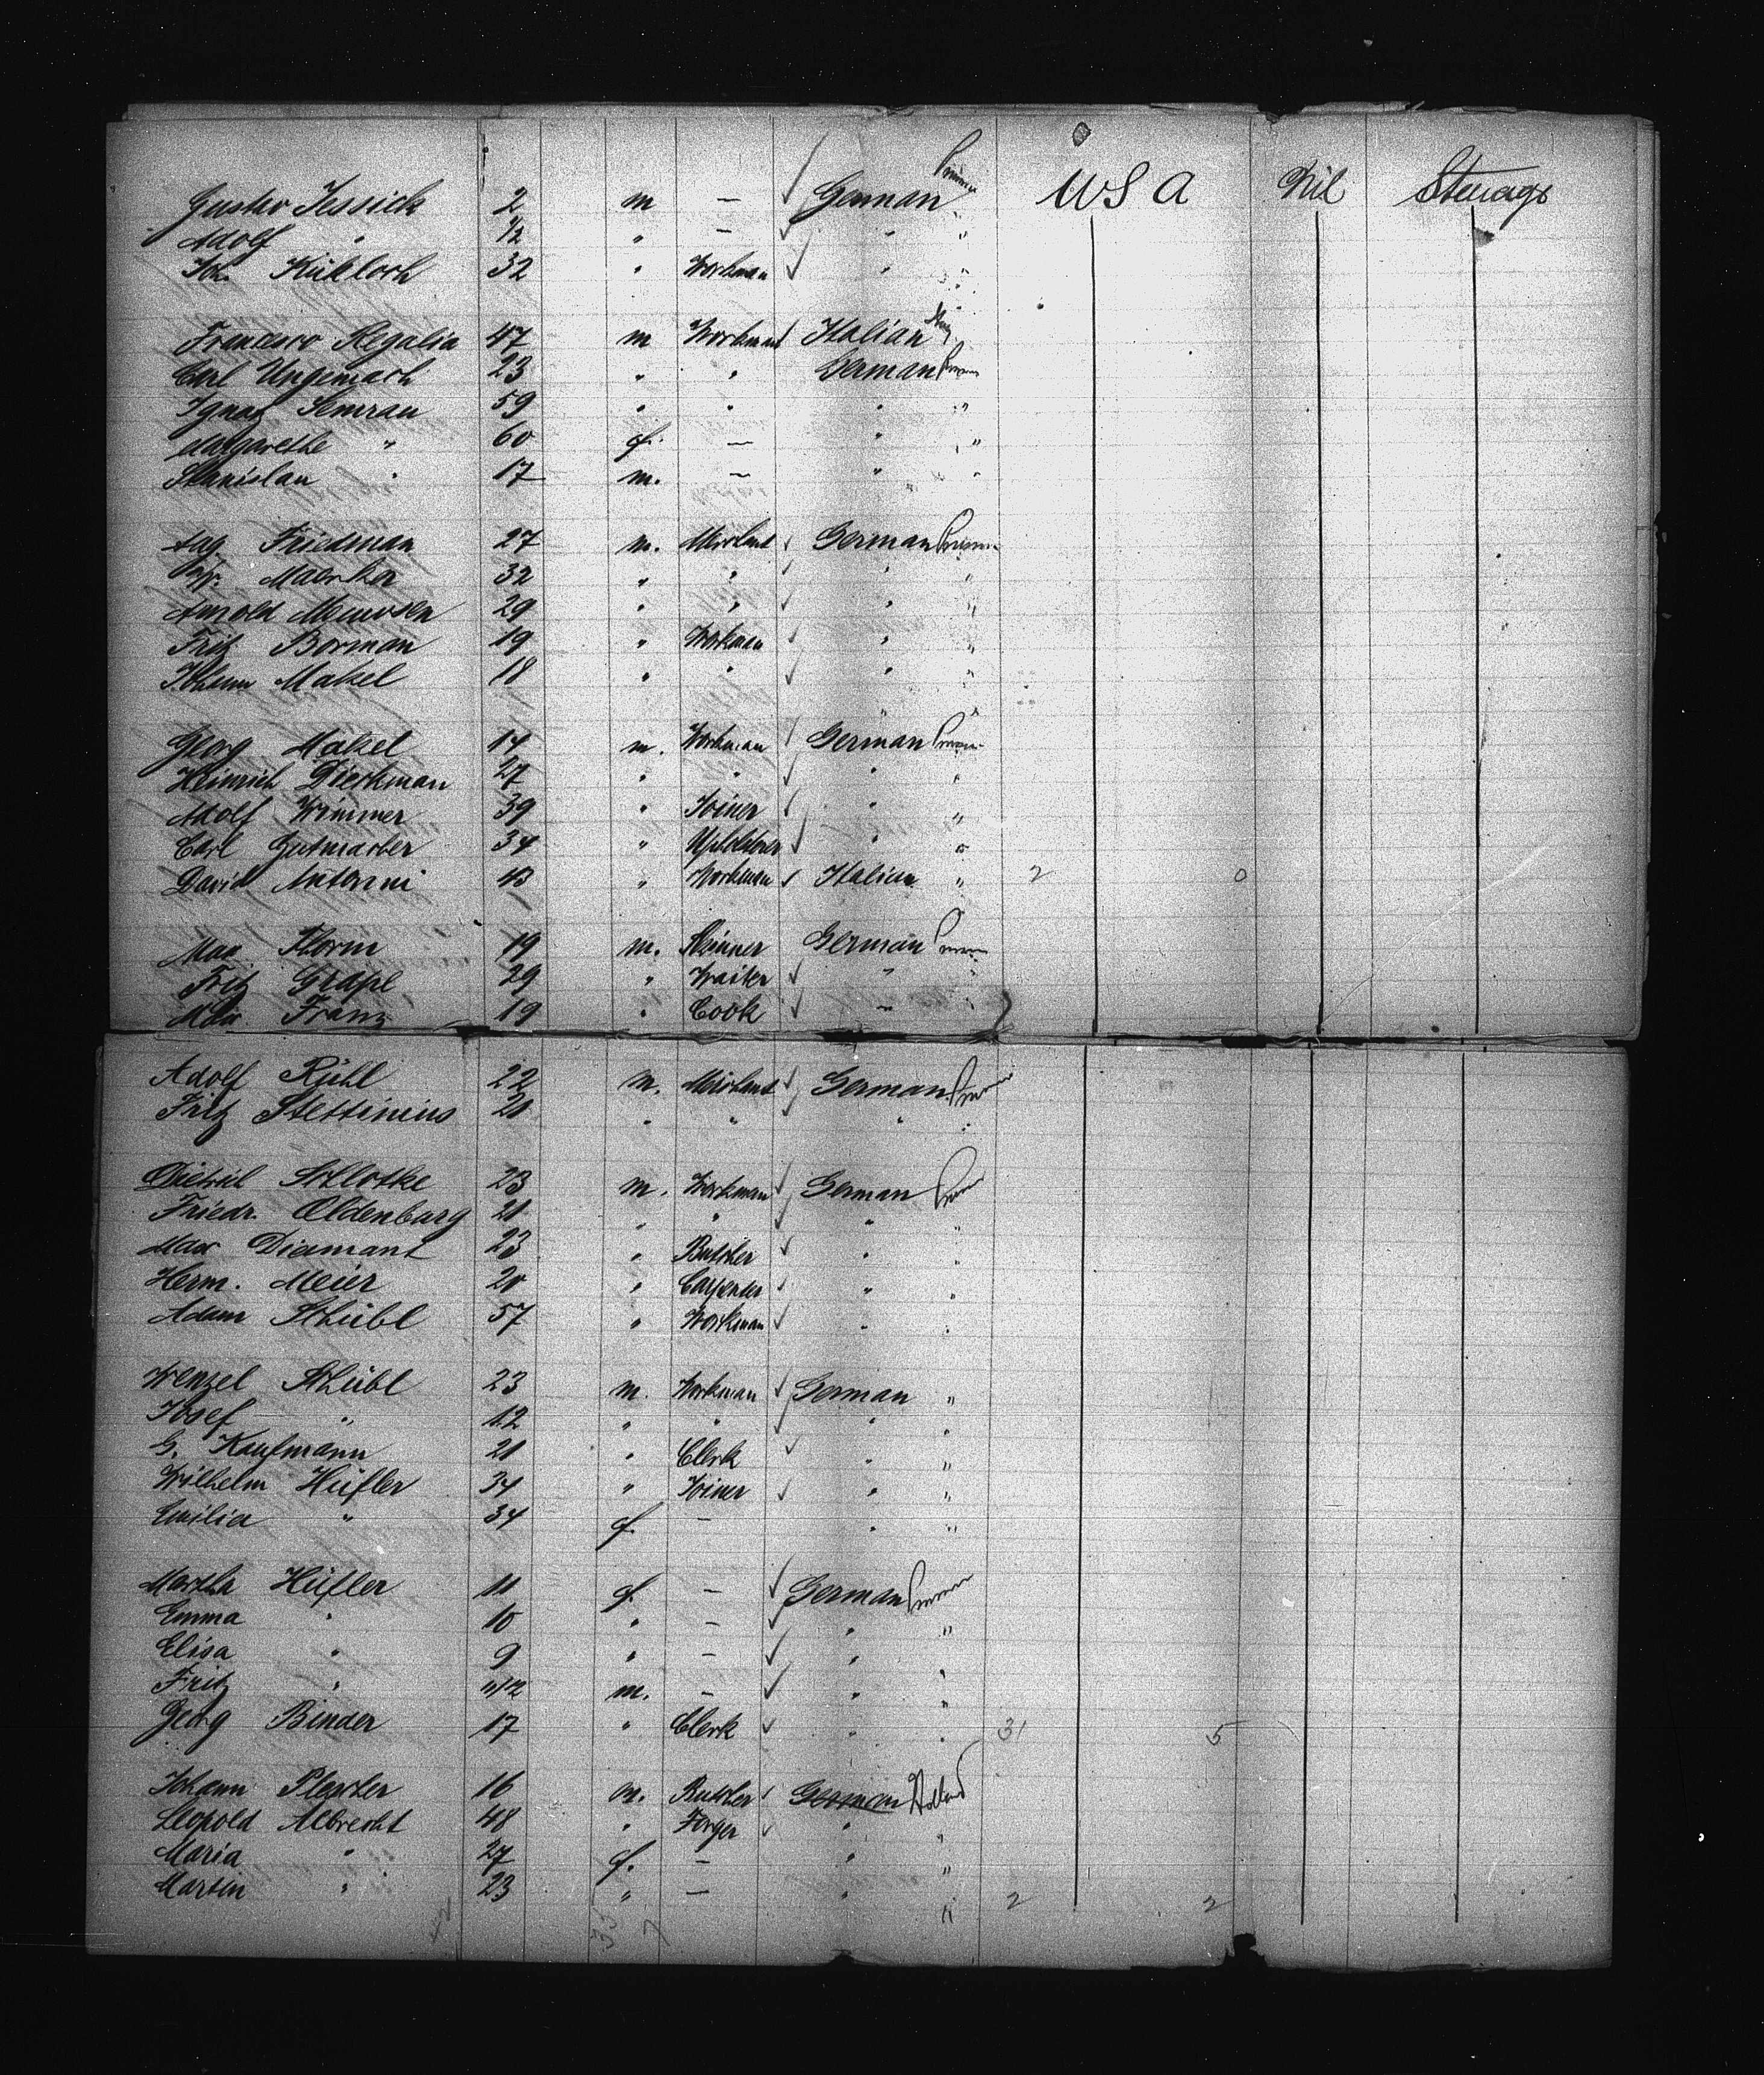 Gustav Jessick 2 m — German Prussia USA Nil Steerage
Adolf " 1/2 " — " "
Joh. Kükloch 32 " Workman " "
Francesco Regalia 47 m Workman Italian Italy
Carl Ungemach 23 " " German Prussia
Ignaz Semrau 59 " " " "
Margarethe " 60 f. — " "
Stanislau " 17 m. — " "
Aug. Friedman 27 m. Merchant German Prussia
Wr. Maerker 32 " " " "
Arnold 29 " " " "
Fritz Borman 19 " Workman " "
Johann Makel 18 " " " "
Georg Makel 14 m. Workman German Prussia
Heinrich Dieckman 27 " " " "
Adolf Wimmer 39 " Joiner " "
Carl Gutmacher 34 " Upholsterer " "
David Antonini 43 " Workman Italian " 2 0
Max Storm 19 m. Skinner German Prussia
Fritz Grapl 29 " Waiter " "
Max Franz 19 " Cook " "
Adolf Rühl 22 m. Merchant German Prussia
Fritz Stettinius 21 " " " "
Dietrich Schlotke 23 m. Workman German Prussia
Friedr. Oldenburg 21 " " " "
Max Diamant 23 " Butcher " "
Herm. Meier 20 " Carpenter " "
Adam Schübl 57 " Workman " "
Wenzel Schübl 23 m. Workman German "
Josef " 12 " " " "
G. Kaufmann 21 " Clerk " "
Wilhelm Hüfler 34 " Joiner " "
Emilia " 34 f. — " "
Martha Hüfler 11 f. — German Prussia
Emma " 10 " — " "
Elisa " 9 " — " "
Fritz " 11/12 m. — " "
Georg Binder 17 " Clerk " " 31 5
Johann Plescher 16 m. Butcher German Holland
Leopold Albrecht 48 " Forger " "
Maria " 27 f. — " "
Martin " 23 " — " " 2 2
42 35 7